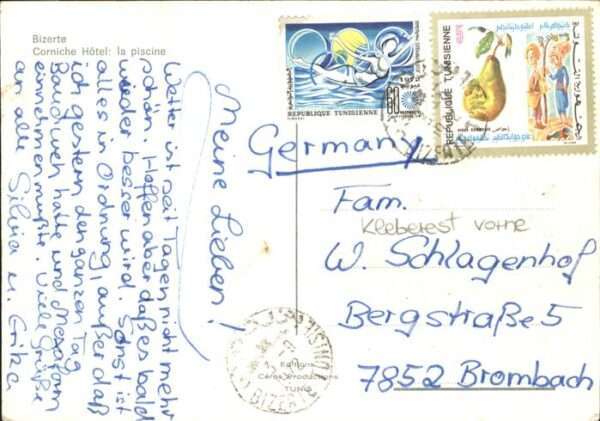 Bizerte
Corniche Hôtel: la piscine
Meine Lieben!
Wetter ist seit Tagen nicht mehr
schön. Hoffen aber daß es bald
wieder besser wird. Sonst ist
alles in Ordnung, außer daß
ich gestern den ganzen Tag
Bauchweh hatte und Mexaform
einnehmen mußte. Viele Grüße
an alle Silvia u. Erika
REPUBLIQUE TUNISIENNE
REPUBLIQUE TUNISIENNE
Germany
Fam.
Kleberest vorne
W. Schlagenhof
Bergstraße 5
7852 Brombach
Editions
Céres Productions
TUNIS
BIZERTE